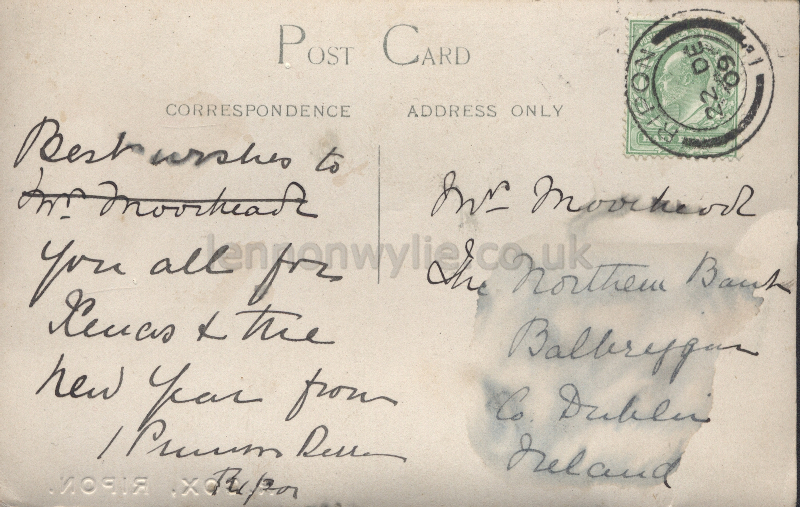 POST CARD
CORRESPONDENCE
ADDRESS ONLY
RIPON
DE 22
09
Best wishes to
Mr. Moorhead
you all for
Xmas & the
New Year from
1
Ripon
Mr. Moorhead
The Northern Bank
Balbriggan
Co. Dublin
Ireland
lennonwylie.co.uk
OX, RIPON.